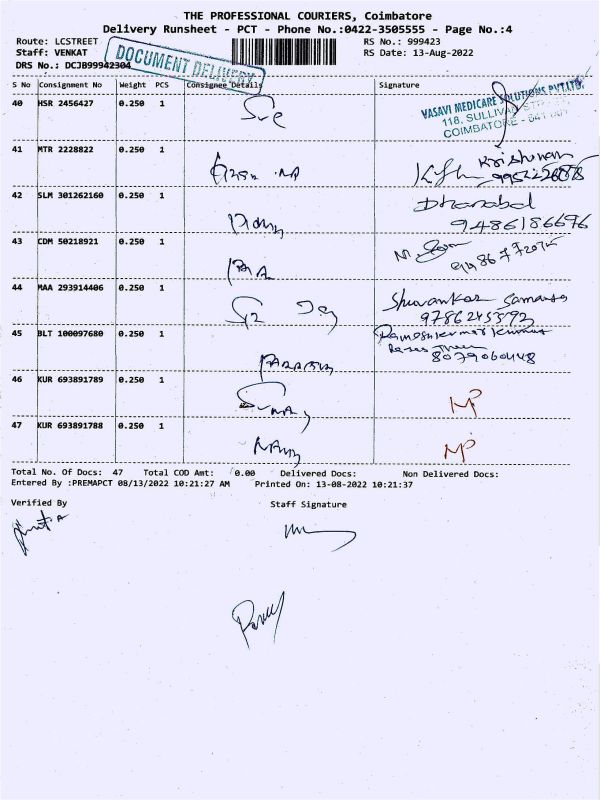 THE PROFESSIONAL COURIERS, Coimbatore
Delivery Runsheet - PCT - Phone No.:0422-3505555 - Page No.:4
Route: LCSTREET RS No.: 999423
Staff: VENKAT RS Date: 13-Aug-2022
DRS No.: DCJB99942304
DOCUMENT DELIVERY
S No Consignment No Weight PCS Consignee Details Signature
VASAVI MEDICARE SOLUTIONS PVT.LTD.
118, SULLIVAN STREET
COIMBATORE - 641 001
40 HSR 2456427 0.250 1 Sre
41 MTR 2228822 0.250 1 Krishnan
42 SLM 301262160 0.250 1 Dhanabal
9486186696
43 CDM 50218921 0.250 1
44 MAA 293914406 0.250 1 Shuvankar Samanta
9786245592
45 BLT 100097680 0.250 1 Rameshkumar
8079060448
46 KUR 693891789 0.250 1 NP
47 KUR 693891788 0.250 1 NP
Total No. Of Docs: 47 Total COD Amt: 0.00 Delivered Docs: Non Delivered Docs:
Entered By :PREMAPCT 08/13/2022 10:21:27 AM Printed On: 13-08-2022 10:21:37
Verified By Staff Signature